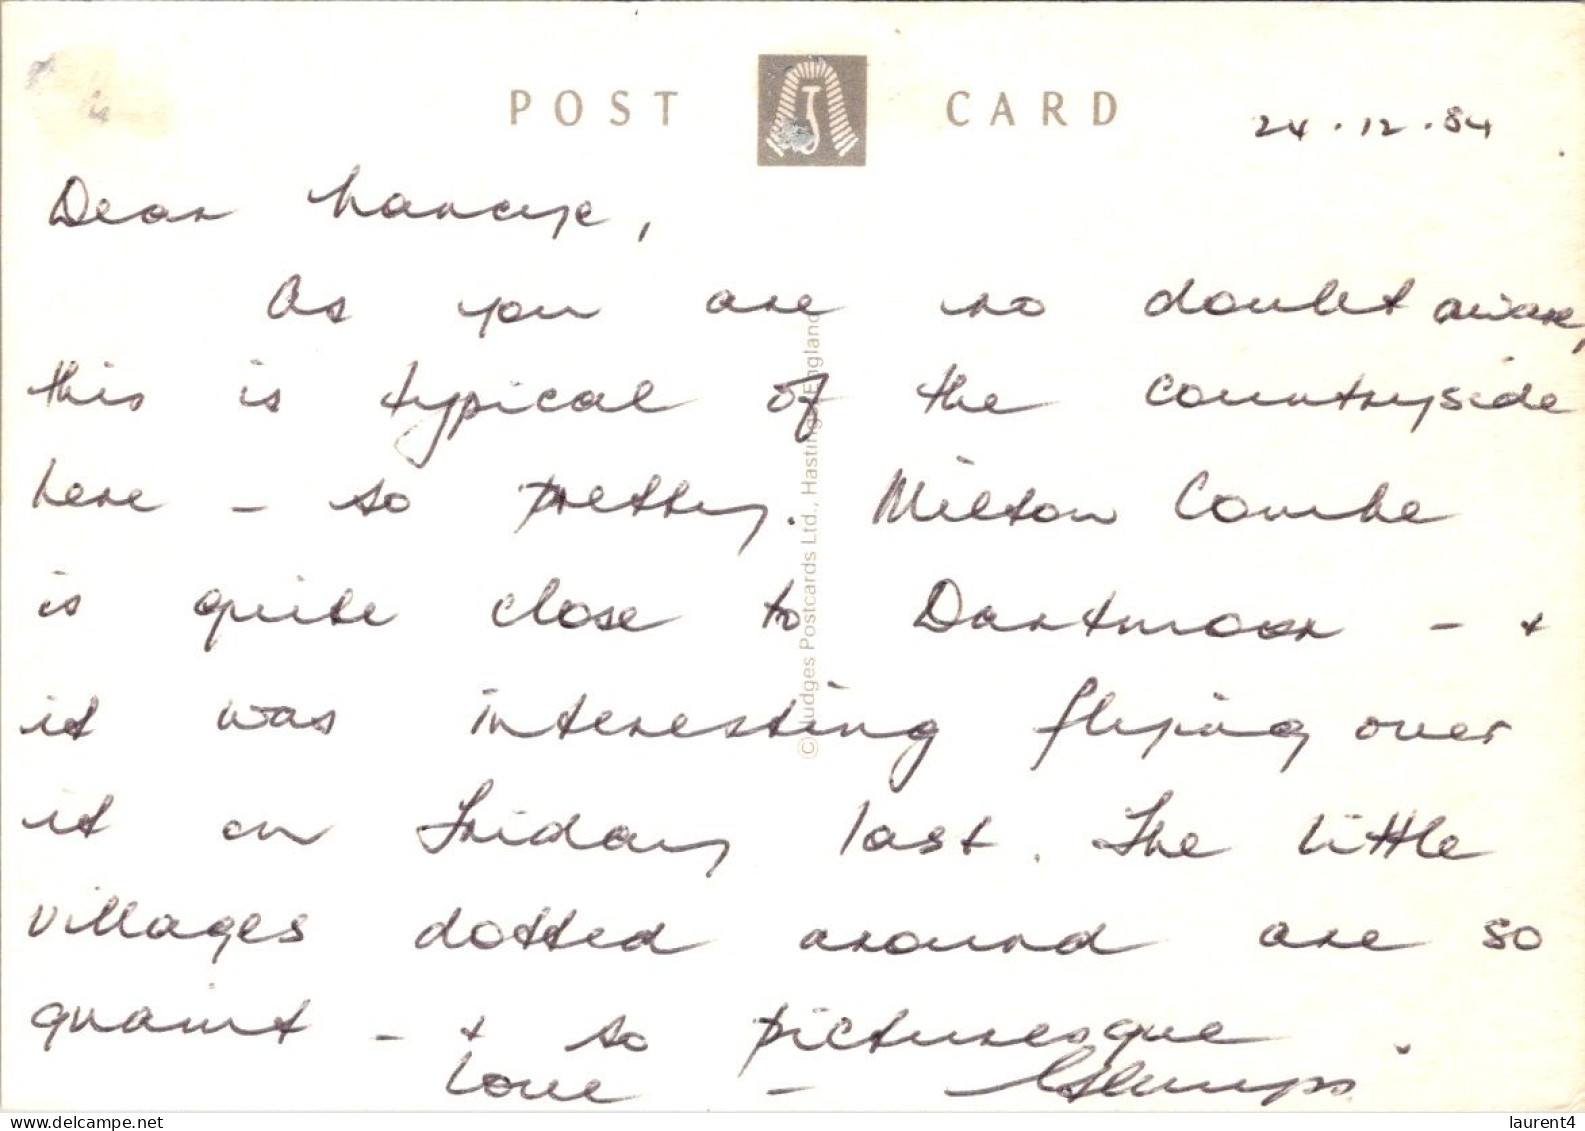 POST CARD
24.12.84
Dear Nancye,
As you are no doubt aware,
this is typical of the countryside
here - so pretty. Milton Combe
is quite close to Dartmoor - +
it was interesting flying over
it on Friday last. The little
villages dotted around are so
quaint - + so picturesque.
Love -
© Judges Postcards Ltd., Hastings, England
delcampe.net
laurent4